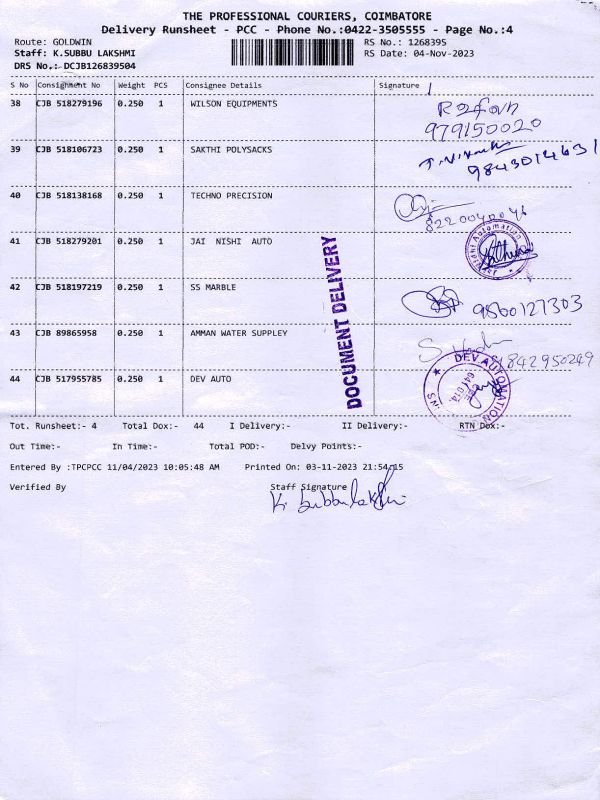 THE PROFESSIONAL COURIERS, COIMBATORE
Delivery Runsheet - PCC - Phone No.:0422-3505555 - Page No.:4
Route: GOLDWIN RS No.: 1268395
Staff: K.SUBBU LAKSHMI RS Date: 04-Nov-2023
DRS No.:- DCJB126839504
S No Consignment No Weight PCS Consignee Details Signature
38 CJB 518279196 0.250 1 WILSON EQUIPMENTS
979150020
39 CJB 518106723 0.250 1 SAKTHI POLYSACKS
9843014631
40 CJB 518138168 0.250 1 TECHNO PRECISION
8220040046
41 CJB 518279201 0.250 1 JAI NISHI AUTO
42 CJB 518197219 0.250 1 SS MARBLE
9860127303
43 CJB 89865958 0.250 1 AMMAN WATER SUPPLEY
9842950249
44 CJB 517955785 0.250 1 DEV AUTO
DEV AUTOMATION
DOCUMENT DELIVERY
Tot. Runsheet:- 4 Total Dox:- 44 I Delivery:- II Delivery:- RTN Dox:-
Out Time:- In Time:- Total POD:- Delvy Points:-
Entered By :TPCPCC 11/04/2023 10:05:48 AM Printed On: 03-11-2023 21:54:15
Verified By Staff Signature
K. Subbulakshmi